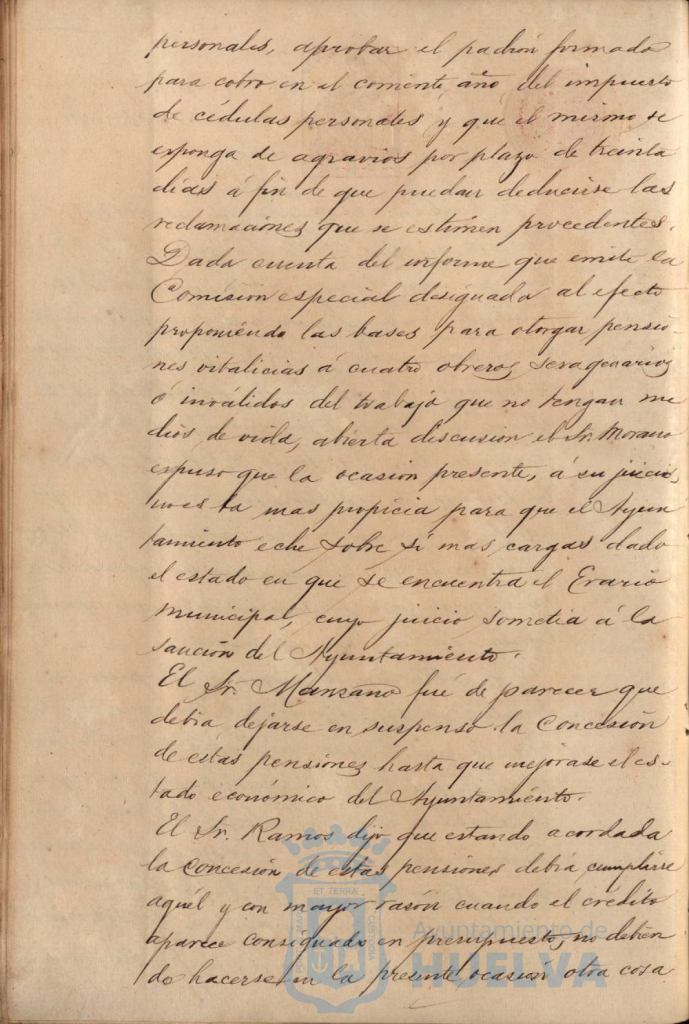 personales, aprobar el padrón formado
para cobro en el corriente año del impuesto
de cédulas personales y que el mismo se
esponga de agravios por plazo de treinta
días á fin de que puedan deducirse las
reclamaciones que se estimen procedentes.
Dada cuenta del informe que emite la
Comision especial designada al efecto
proponiendo las bases para otorgar pensio-
nes vitalicias á cuatro obreros sexagenarios
ó inválidos del trabajo que no tengan me
dios de vida, abierta discusion el Sr. Morano
espuso que la ocasion presente, á su juicio,
no es la mas propicia para que el Ayun
tamiento eche sobre sí mas cargas dado
el estado en que se encuentra el Erario
municipal, cuyo juicio sometia á la
sanción del Ayuntamiento.
El Sr. Manzano fué de parecer que
debia dejarse en suspenso la Concesión
de estas pensiones hasta que mejorase el es-
tado económico del Ayuntamiento.
El Sr. Ramos dijo que estando acordada
la concesión de estas pensiones debia cumplirse
aquél y con mayor razón cuando el crédito
aparece consignado en presupuesto, no debien
do hacerse en la presente ocasion otra cosa
ET TERRAE
Ayuntamiento de
HUELVA